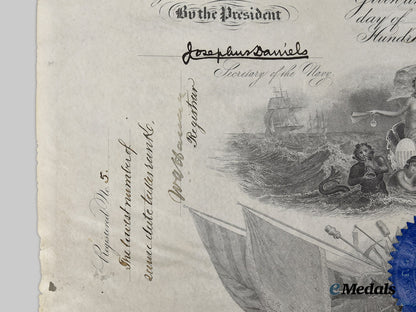 By the President
Given a
day of
Hundr
Josephus Daniels
Secretary of the Navy.
Registered No. 5.
The lowest number of
same date takes rank.
Registrar
eMedals